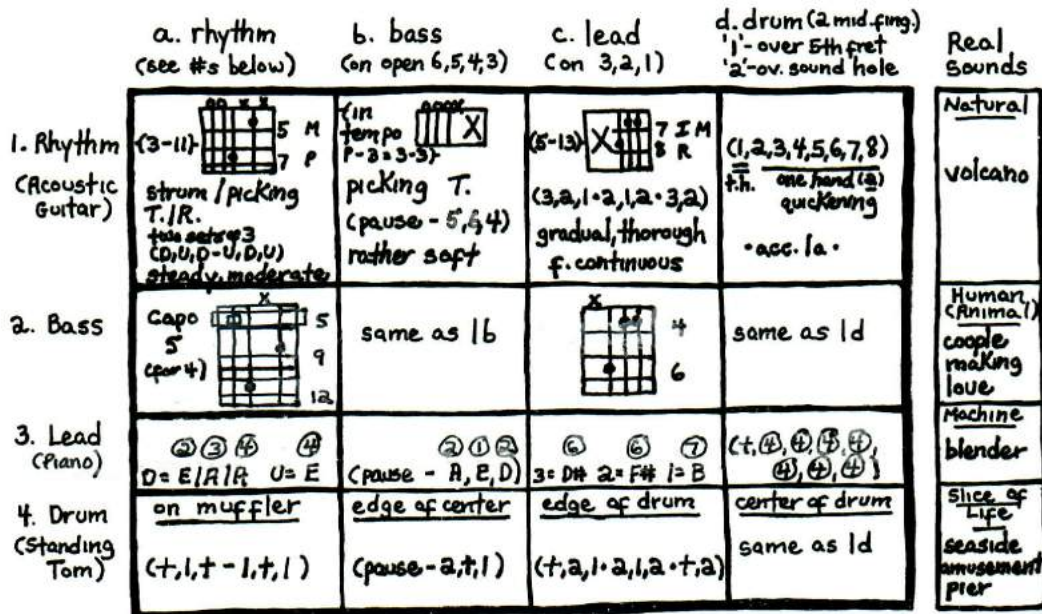 a. rhythm
(see #s below)
b. bass
(on open 6,5,4,3)
c. lead
(on 3,2,1)
d. drum (2 mid. fing.)
'1'- over 5th fret
'2'- ov. sound hole
Real
Sounds
1. Rhythm
(Acoustic
Guitar)
{3-11}
5 M
7 P
strum / picking
T./R.
two sets of 3
(D,U,D-U,D,U)
steady, moderate
{in
tempo
P-3=3-3}
X
picking T.
(pause - 5,6,4)
rather soft
(5-13)
X
7 I M
8 R
(3,2,1·2,1,2·3,2)
gradual, thorough
f. continuous
(1,2,3,4,5,6,7,8)
t.h. one hand (2)
quickening
·acc. 1a·
Natural
volcano
2. Bass
Capo
5
(for 4)
x
5
9
12
same as 1b
x
4
6
same as 1d
Human,
(Animal)
coople
making
love
3. Lead
(Piano)
② ③ ④ ④
D= E/A/A U= E
② ① ②
(pause - A, E, D)
⑥ ⑥ ⑦
3= D# 2= F# 1= B
(t,④,④,④,④,
④,④,④)
Machine
blender
4. Drum
(Standing
Tom)
on muffler
(t,1,t - 1,t,1)
edge of center
(pause - 2,t,1)
edge of drum
(t,2,1·2,1,2·t,2)
center of drum
same as 1d
Slice of
Life
seaside
amusement
pier